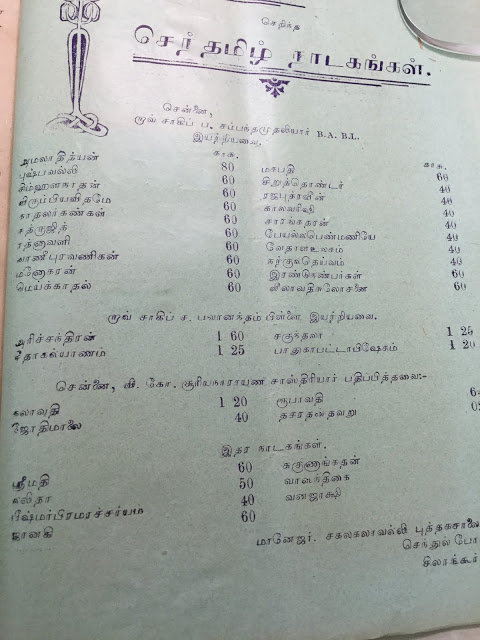 செறிந்த
செந்தமிழ் நாடகங்கள்.
சென்னை,
ராவ் சாகிப் ப. சம்பந்தமுதலியார் B.A. B.L.
இயற்றியவை.
காசு. காசு.
அமலாதித்யன் 80 மகபதி 60
புஷ்பவல்லி 60 சிறுத்தொண்டர் 40
சிம்ஹளநாதன் 60 ரஜபுத்ரவீரன் 40
விரும்பியவிதமே 60 காலவரிஷி 40
காதலர்கண்கள் 60 சாரங்கதரன் 40
சத்ருஜித் 60 பேயல்லபெண்மணியே 40
ரத்னாவளி 60 வேதாளஉலகம் 40
வாணிபுரவணிகன் 60 நற்குலதெய்வம் 40
மனோகரன் 60 இரண்டுநண்பர்கள் 60
மெய்க்காதல் 60 லீலாவதிசுலோசனை 60
ராவ் சாகிப் ச. பவானந்தம்பிள்ளை இயற்றியவை.
அரிச்சந்திரன் 1 60 சகுந்தலா 1 25
1 25 பாதுகாபட்டாபிஷேகம் 1 20
சென்னை, வி. கோ. சூரியநாராயண சாஸ்திரியார் பதிப்பித்தவை:-
கலாவதி 1 20 ரூபாவதி
ஜோதிமாலை 40
இதர நாடகங்கள்.
ஸ்ரீமதி 60 சுகுணசுந்தரன்
லலிதா 50 வாஸந்திகை
பீஷ்மர்பிரமசர்யம் 40 வனஜாக்ஷி
ஜானகி 60
மானேஜர். சகலகலாவல்லி புத்தகசாலை
செந்துல் போ
சிலாங்கூர்